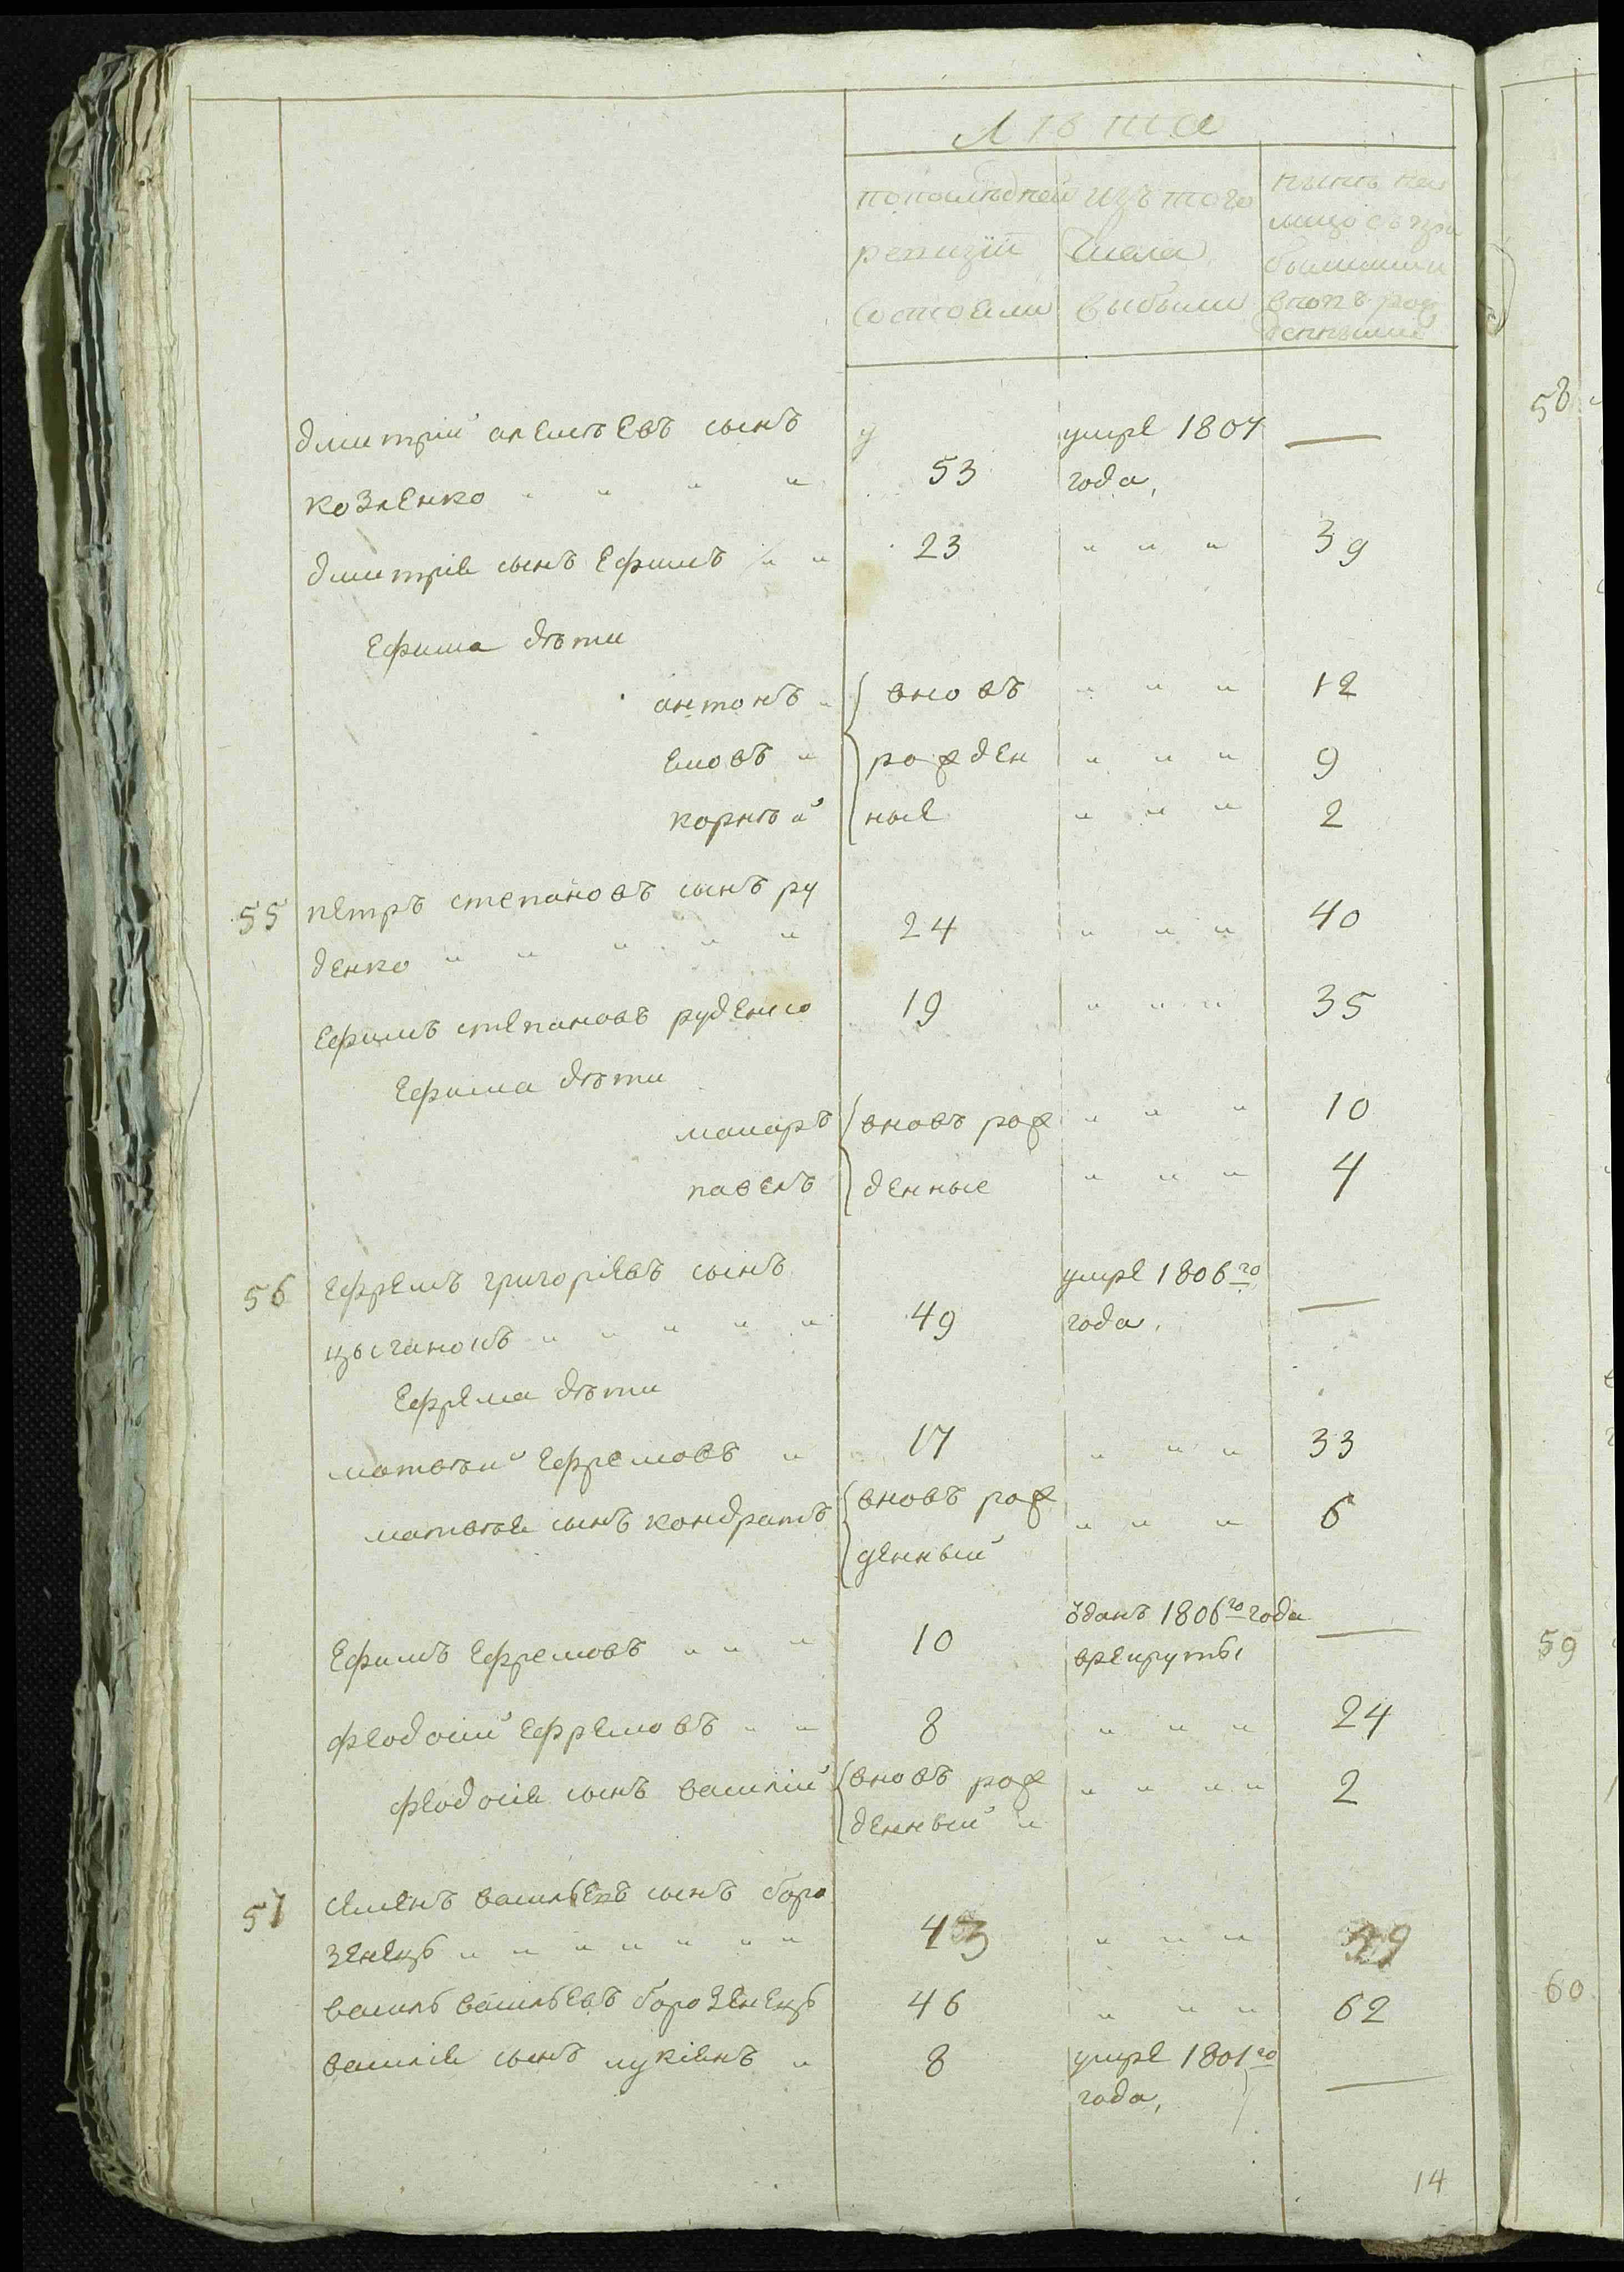 Лѣта
попослѣдней ревизіи состояли
изъ того числа выбыли
нынѣ на лицо съ прибылыми вновь рожденными
дмитрій алексѣевъ сынъ умре 1807 —
козленко " " " " 53 года,
дмитріев сынъ Ефимъ " " 23 " " " 39
Ефима дѣти
антонъ " вновъ " " " 12
іяковъ " рожден " " " 9
корнѣй ные " " " 2
55 петръ степановъ сынъ ру
денко " " " " " 24 " " " 40
Ефимъ степановъ руденко 19 " " " 35
Ефима дѣти
макаръ вновъ рож " " " 10
павелъ денные " " " 4
56 Ефремъ григоріевъ сынъ умре 1806го
цыганокъ " " " " " 49 года, —
Ефрема дѣти
матвѣй Ефремовъ " 17 " " " 33
матвѣев сынъ кондратъ вновъ рож " " " 6
денный
Ефимъ Ефремовъ " " " 10 ѿданъ 1806го года —
врекруты
феодосій Ефремовъ " " 8 " " " 24
феодосіев сынъ василій вновъ рож " " " " 2
денный "
57 семенъ васильевъ сынъ боро
зенецъ " " " " " " " 43 " " " 59
василь васильевъ борозенецъ 46 " " " 62
василіев сынъ лукіянъ " 8 умре 1801го —
года,
14
58
59
60